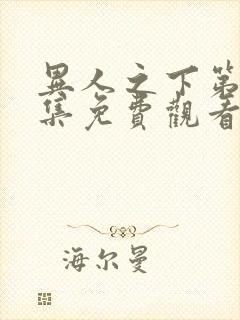 異人之下第
集免費觀看
海尔曼